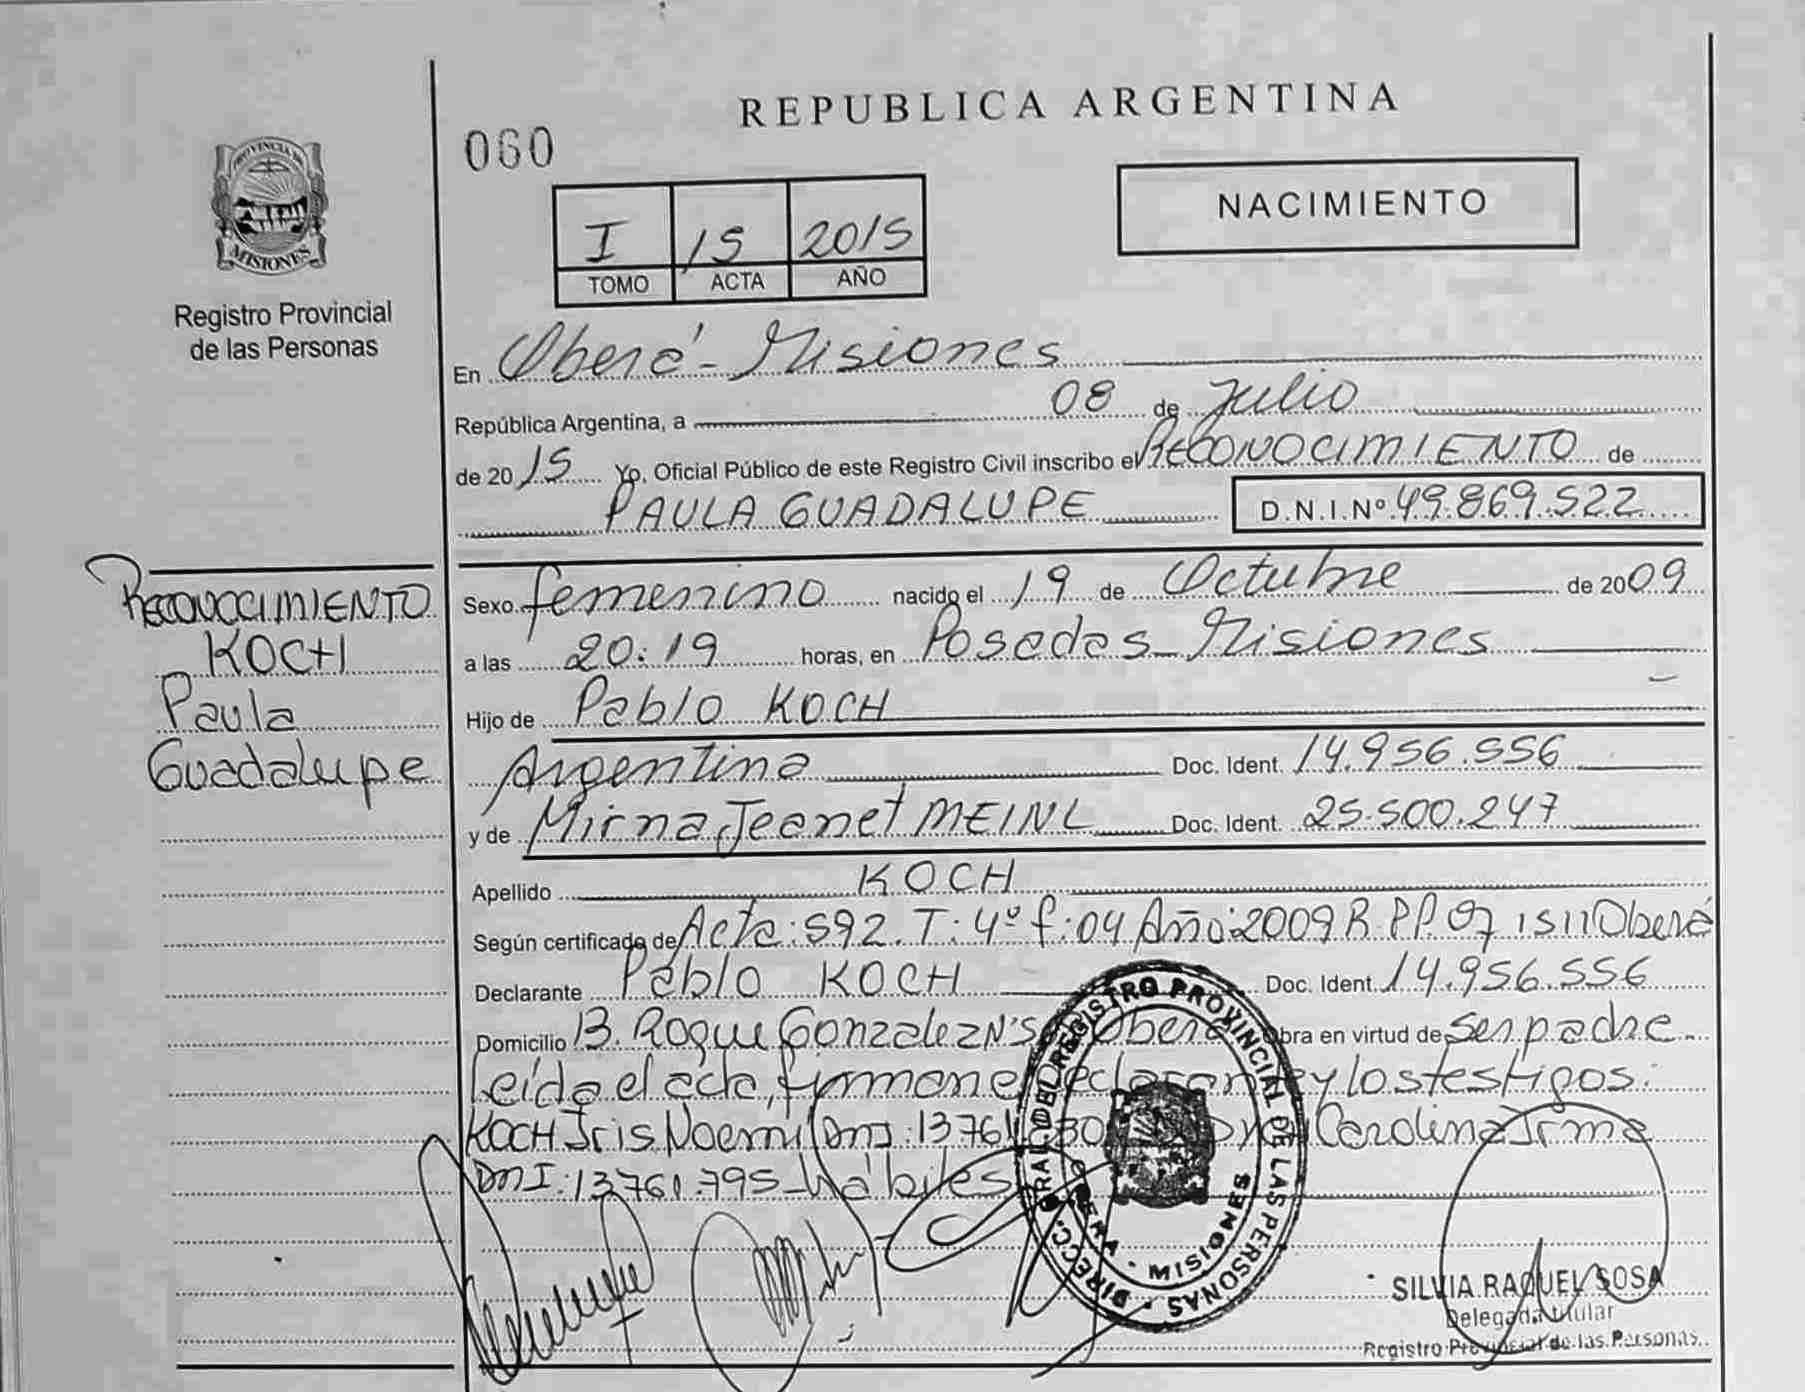 REPUBLICA ARGENTINA
060
NACIMIENTO
PROVINCIA DE
MISIONES
Registro Provincial
de las Personas
I 15 2015
TOMO ACTA AÑO
En Oberá - Misiones
República Argentina, a 08 de Julio
de 2015 Yo, Oficial Público de este Registro Civil inscribo el RECONOCIMIENTO de
PAULA GUADALUPE D.N.I.Nº 49.869.522
RECONOCIMIENTO
KOCH
Paula
Guadalupe
Sexo femenino nacido el 19 de Octubre de 2009
a las 20:19 horas, en Posadas - Misiones
Hijo de Pablo KOCH
Argentina Doc. Ident. 14.956.556
y de Mirna Jeanet MEINL Doc. Ident. 25.500.247
Apellido KOCH
Según certificado de Acta: 592. T: 4º f: 04 Año: 2009 R.PP. 07 Oberá
Declarante Pablo KOCH Doc. Ident 14.956.556
Domicilio B. Roque Gonzalez N's Oberá Obra en virtud de ser padre.
Leída el acta, firman el declarante y los testigos:
KOCH Iris Noemi DNI: 13.761 Carolina Irma
DNI: 13.761.795 - hábiles
DIRECC. GRAL. DEL REGISTRO PROVINCIAL DE LAS PERSONAS
OBERA - MISIONES
SILVIA RAQUEL SOSA
Delegada titular
Registro Provincial de las Personas